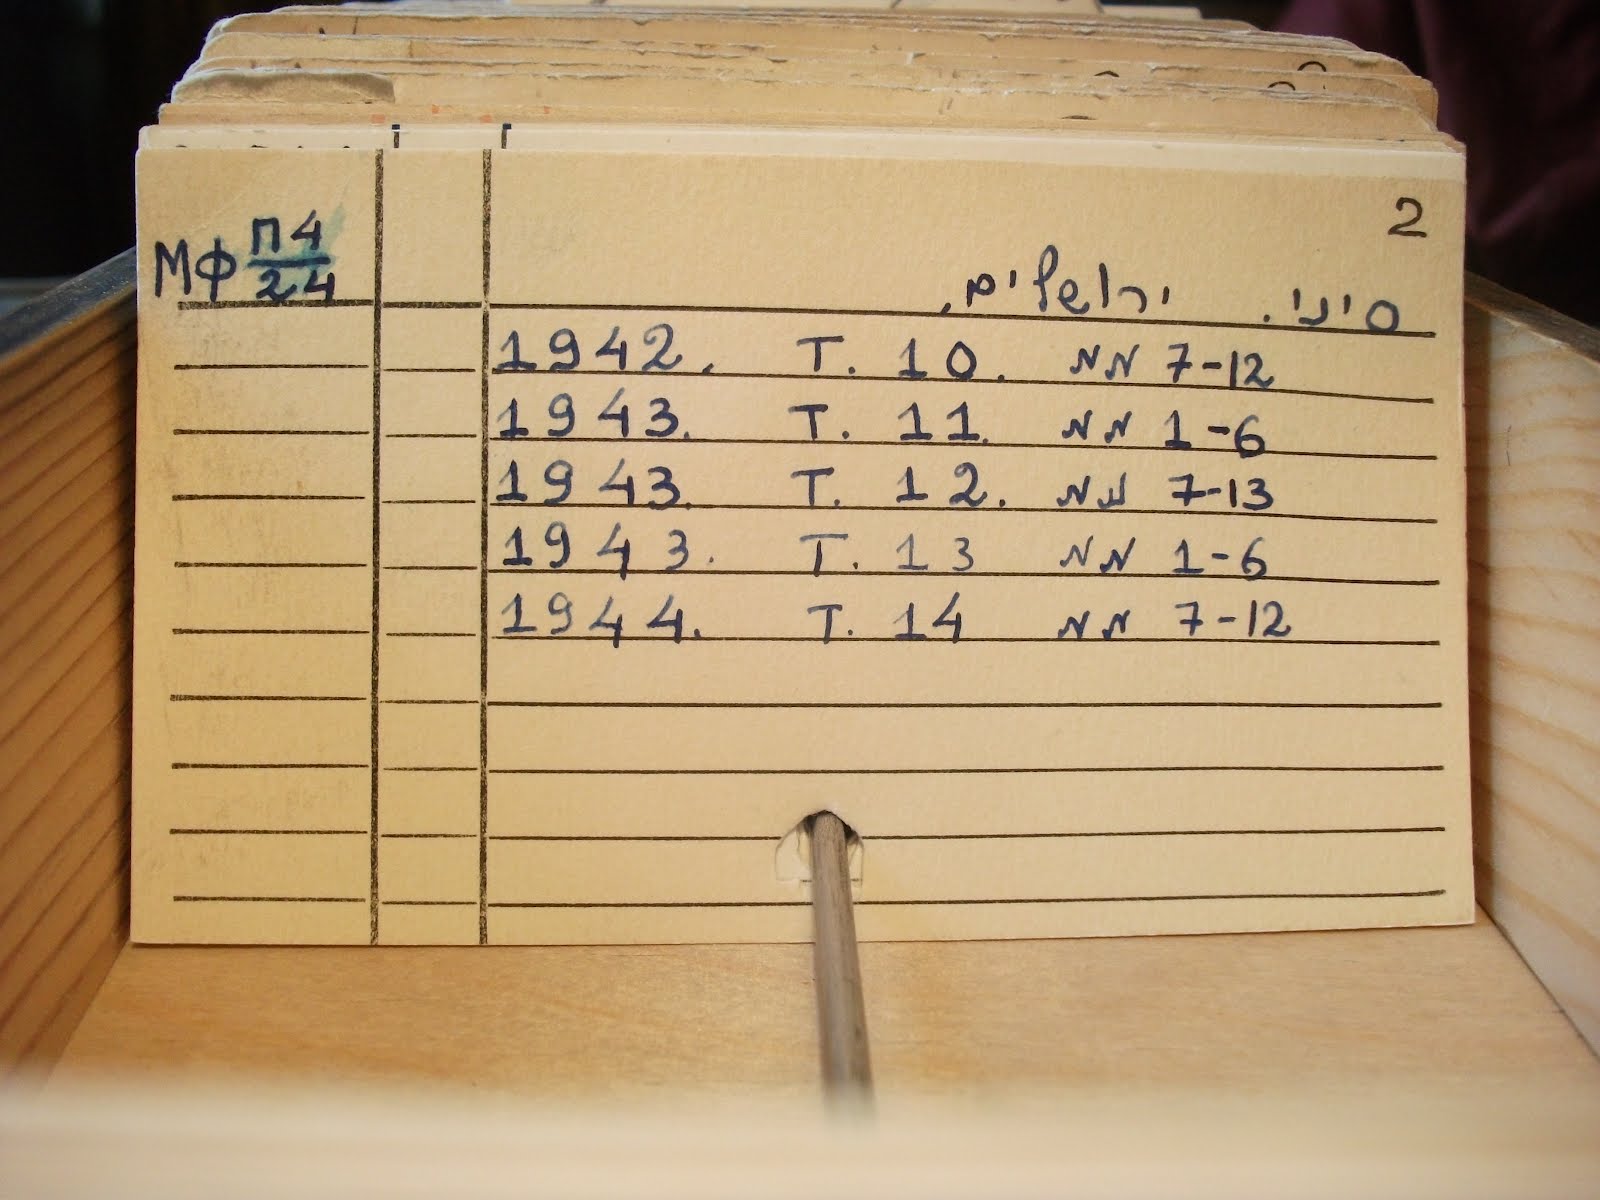 2
МФ П4
24
סיני. ירושלים,
1942. Т. 10. NN 7-12
1943. Т. 11. NN 1-6
1943. Т. 12. NN 7-13
1943. Т. 13 NN 1-6
1944. Т. 14 NN 7-12